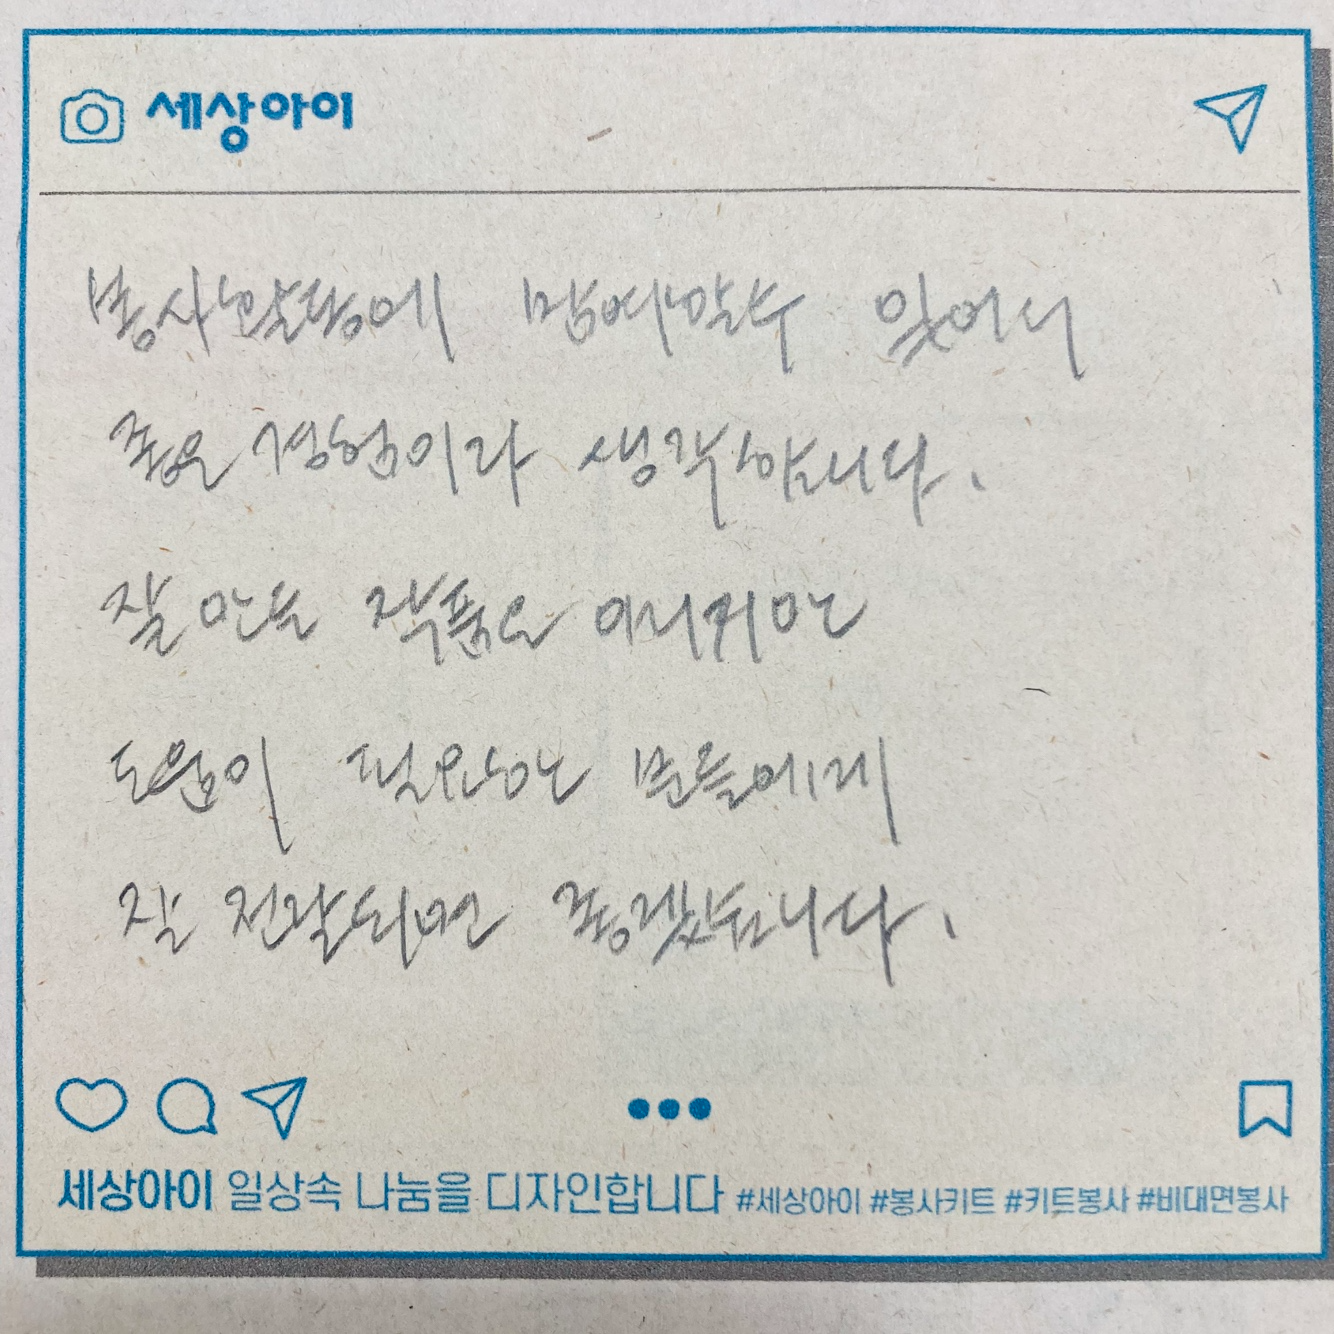 세상아이
봉사활동에 참여할수 있어서
좋은 경험이라 생각합니다.
잘 만든 작품은 아니지만
도움이 필요한 분들에게
잘 전달되면 좋겠습니다.
세상아이 일상속 나눔을 디자인합니다 #세상아이 #봉사키트 #키트봉사 #비대면봉사